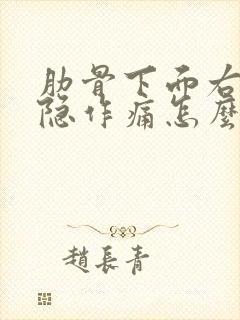 肋骨下面右
隐作痛怎麼
趙長青